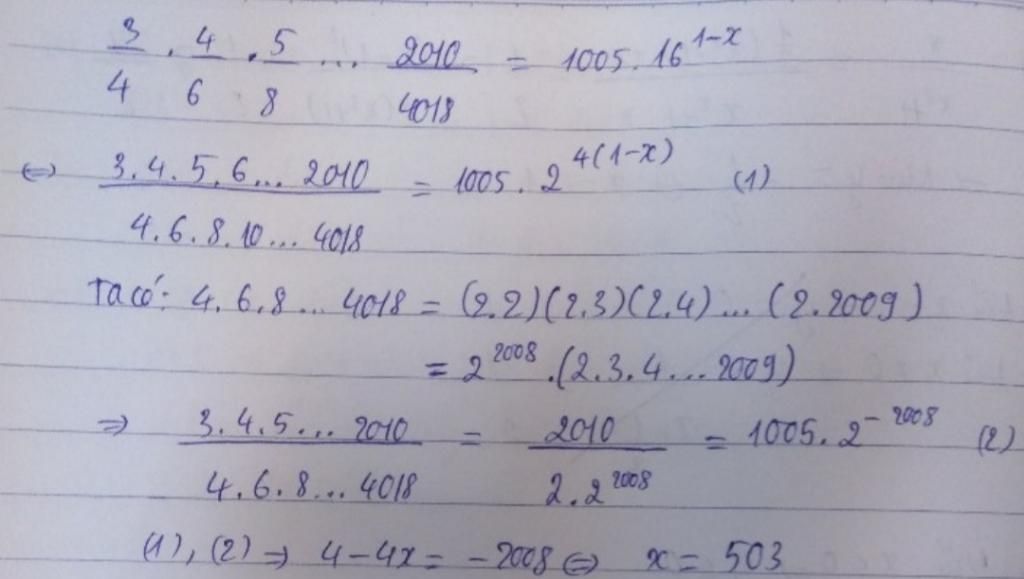 3/4 . 4/6 . 5/8 ... 2010/4018 = 1005.16^{1-x}
⇔ 3.4.5.6... 2010/4.6.8.10... 4018 = 1005.2^{4(1-x)} (1)
Ta có: 4.6.8... 4018 = (2.2)(2.3)(2.4)... (2.2009)
= 2^{2008}.(2.3.4...2009)
⇒ 3.4.5... 2010/4.6.8...4018 = 2010/2.2^{2008} = 1005.2^{-2008} (2)
(1), (2) ⇒ 4-4x = -2008 ⇔ x = 503